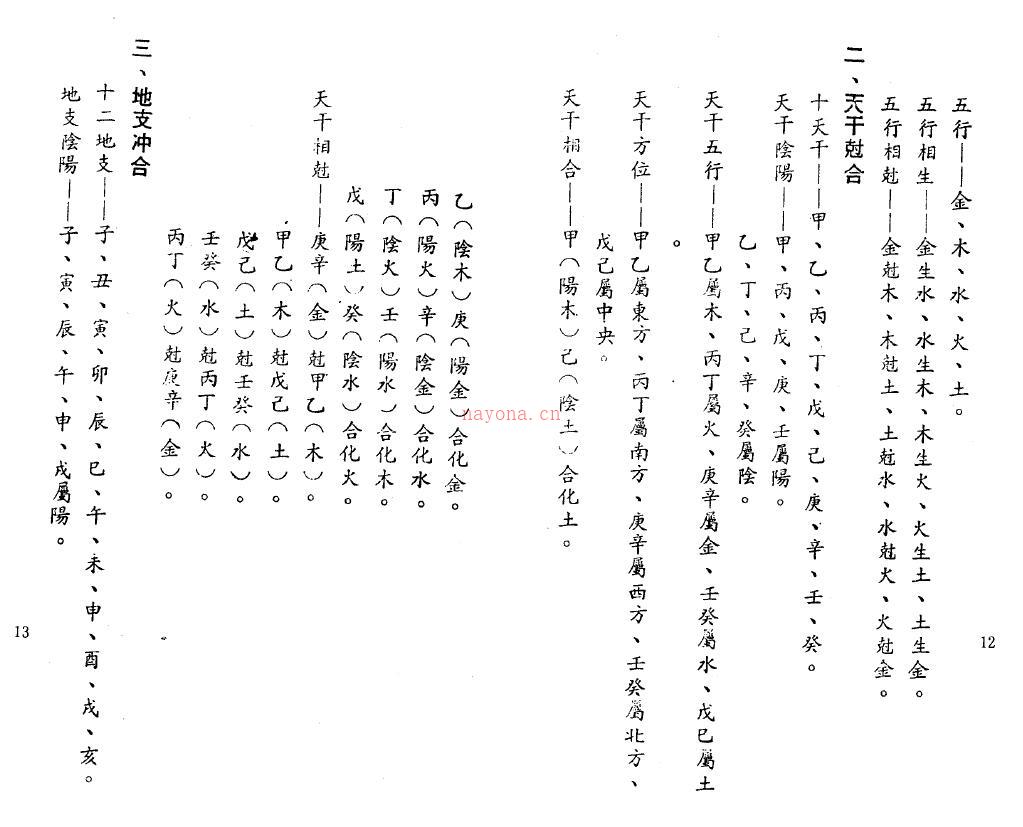 五行——金、木、水、火、土。
五行相生——金生水、水生木、木生火、火生土、土生金。
五行相尅——金尅木、木尅土、土尅水、水尅火、火尅金。
二、天干尅合
十天干——甲、乙、丙、丁、戊、己、庚、辛、壬、癸。
天干陰陽——甲、丙、戊、庚、壬屬陽。
乙、丁、己、辛、癸屬陰。
天干五行——甲乙屬木、丙丁屬火、庚辛屬金、壬癸屬水、戊己屬土
。
天干方位——甲乙屬東方、丙丁屬南方、庚辛屬西方、壬癸屬北方、
戊己屬中央。
天干相合——甲（陽木）己（陰土）合化土。
12
乙（陰木）庚（陽金）合化金。
丙（陽火）辛（陰金）合化水。
丁（陰火）壬（陽水）合化木。
戊（陽土）癸（陰水）合化火。
天干相尅——庚辛（金）尅甲乙（木）。
甲乙（木）尅戊己（土）。
戊己（土）尅壬癸（水）。
壬癸（水）尅丙丁（火）。
丙丁（火）尅庚辛（金）。
三、地支冲合
十二地支——子、丑、寅、卯、辰、巳、午、未、申、酉、戌、亥。
地支陰陽——子、寅、辰、午、申、戌屬陽。
13
nayona.cn